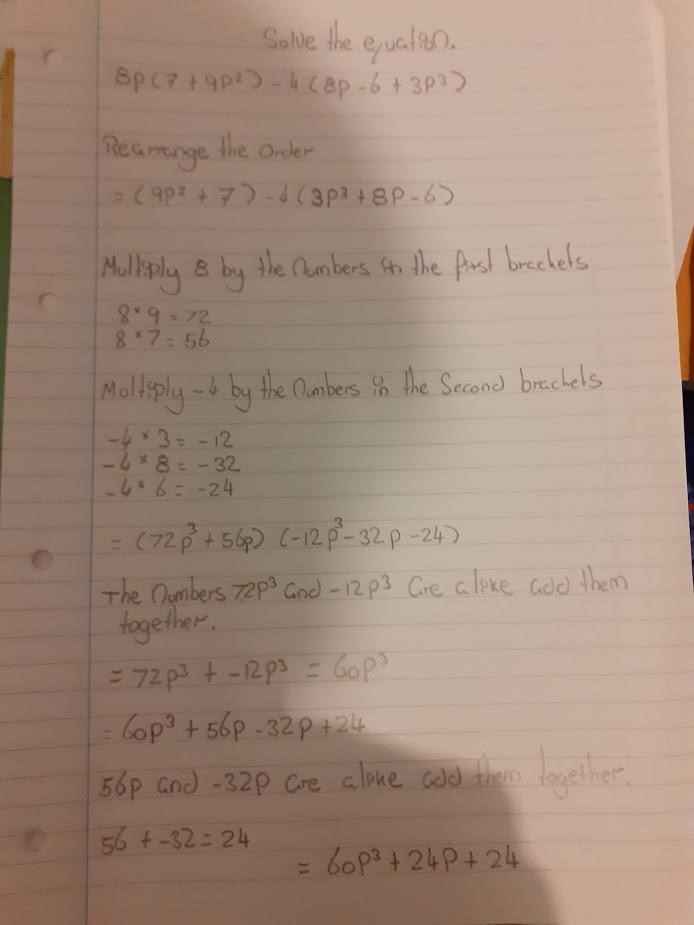 Solve the equation.
8p(7 + 9p²) - 4(8p - 6 + 3p³)
Rearrange the Order
= (9p² + 7) - 4(3p³ + 8p - 6)
Multiply 8 by the numbers in the first brackets
8 × 9 = 72
8 × 7 = 56
Multiply -4 by the numbers in the Second brackets
-4 × 3 = -12
-4 × 8 = -32
-4 × 6 = -24
= (72p³ + 56p) (-12p³ - 32p - 24)
The numbers 72p³ and -12p³ are alike add them
together.
= 72p³ + -12p³ = 60p³
= 60p³ + 56p - 32p + 24
56p and -32p are alike add them together.
56 + -32 = 24
= 60p³ + 24p + 24